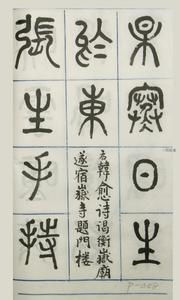 杲寒日生
於東
右韓愈诗謁衡嶽廟
遂宿嶽寺題門楼
張生手持